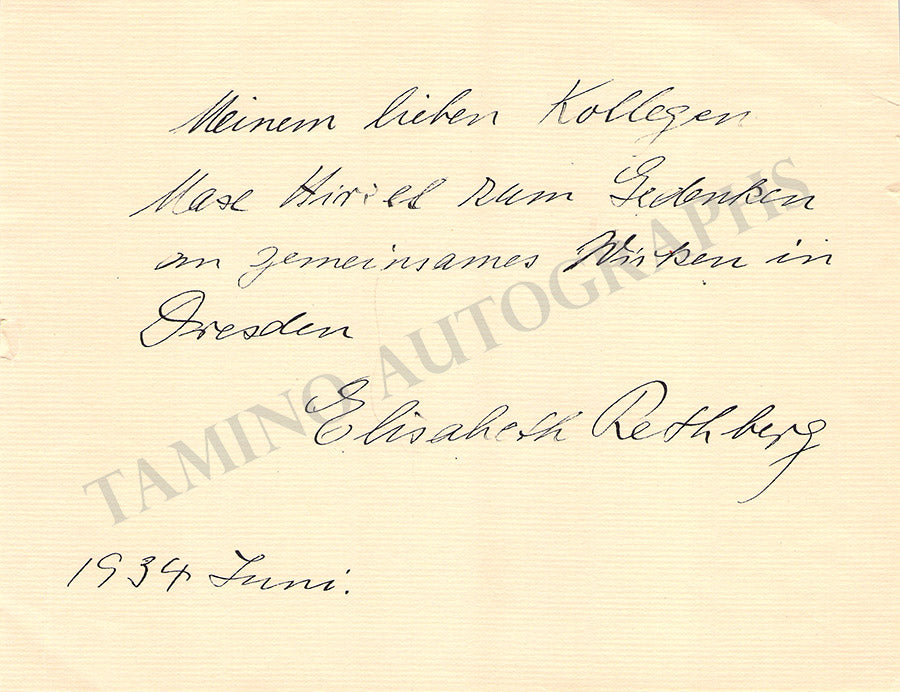 Meinem lieben Kollegen
Max Hirzel zum Gedenken
an gemeinsames Wirken in
Dresden
Elisabeth Rethberg
1934 Juni.
TAMINO AUTOGRAPHS